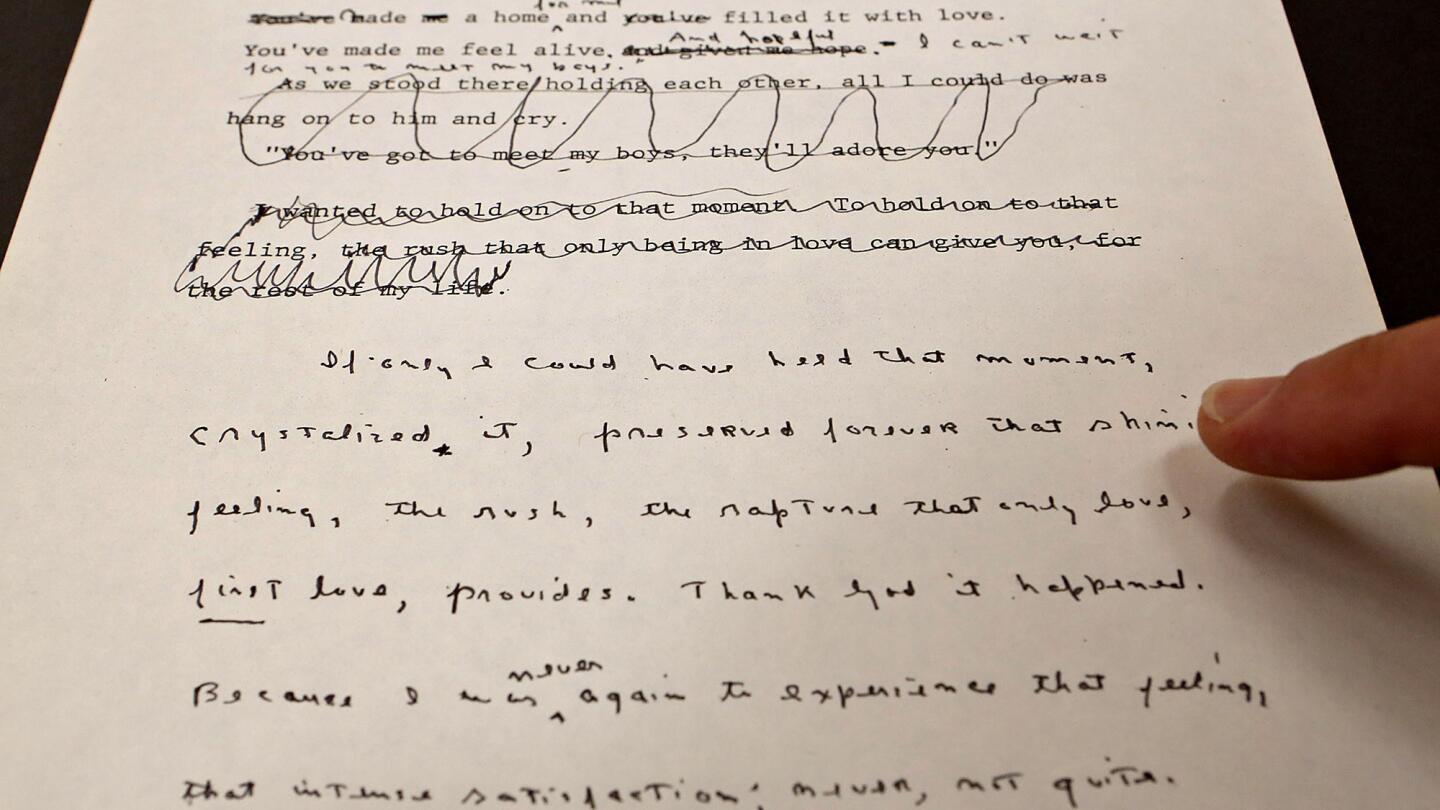 for me
You've made me a home and you've filled it with love.
And hopeful
You've made me feel alive, and given me hope. - I can't wait
for you to meet my boys."
As we stood there holding each other, all I could do was
hang on to him and cry.
"You've got to meet my boys, they'll adore you."
I wanted to hold on to that moment. To hold on to that
feeling, the rush that only being in love can give you, for
the rest of my life.
If only I could have held that moment,
crystalized it, preserved forever that shini
feeling, the rush, the rapture that only love,
first love, provides. Thank God it happened.
never
Because I was again to experience that feeling,
that intense satisfaction; never, not quite.